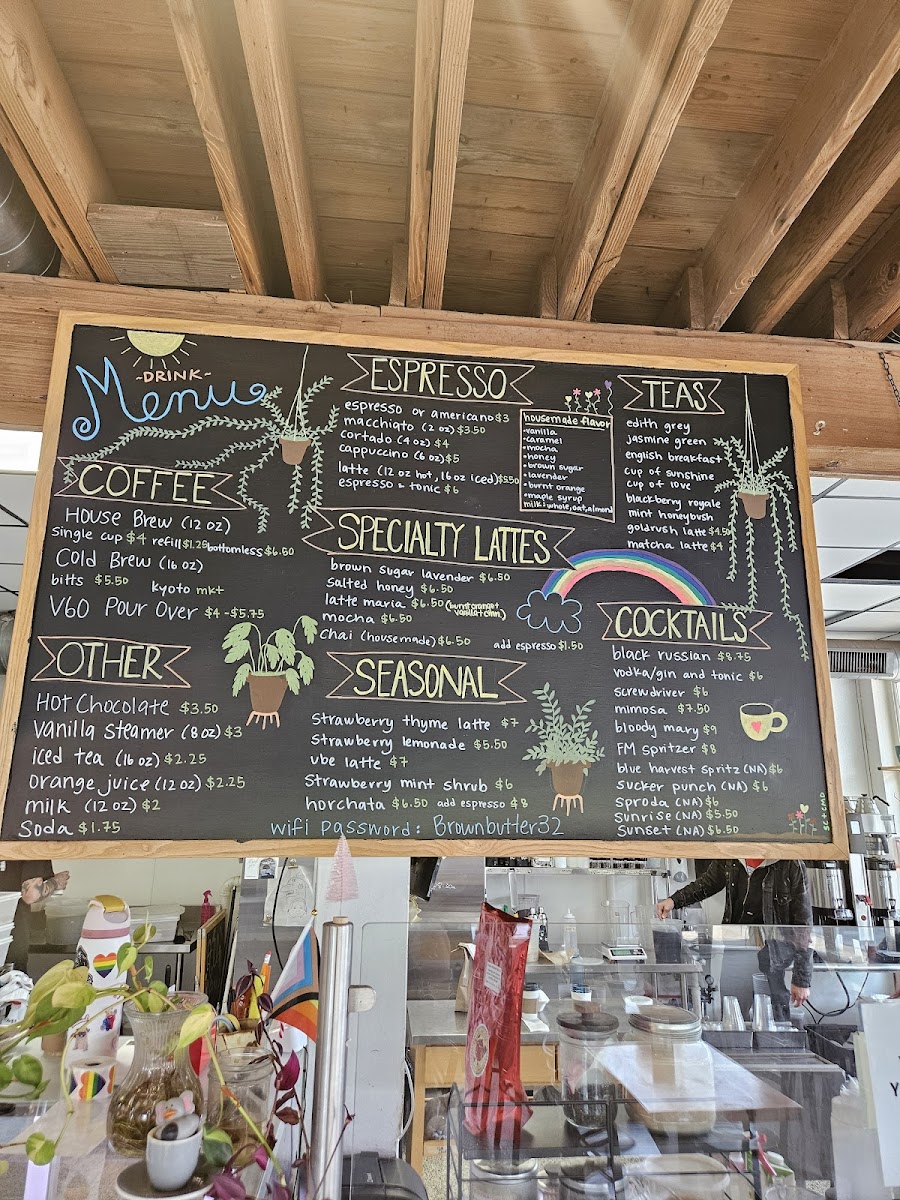 ~DRINK~
Menu
COFFEE
House Brew (12 oz)
Single cup $4 refill $1.25 bottomless $6.50
Cold Brew (16 oz)
bitts $5.50 kyoto mkt
V60 Pour Over $4-$5.75
OTHER
Hot Chocolate $3.50
vanilla steamer (8 oz) $3
iced tea (16 oz) $2.25
orange juice (12 oz) $2.25
milk (12 oz) $2
Soda $1.75
ESPRESSO
espresso or americano $3
macchiato (2 oz) $3.50
cortado (4 oz) $4
cappuccino (6 oz) $5
latte (12 oz hot, 16 oz iced) $5.50
espresso & tonic $6
housemade flavor
•vanilla
•caramel
•mocha
•honey
•brown sugar
•lavender
•burnt orange
•maple syrup
milk: whole, oat, almond
SPECIALTY LATTES
brown sugar lavender $6.50
salted honey $6.50
latte maria $6.50 (burnt orange + vanilla + cinn)
mocha $6.50
chai (housemade) $6.50 add espresso $1.50
SEASONAL
Strawberry thyme latte $7
Strawberry lemonade $5.50
ube latte $7
Strawberry mint shrub $6
horchata $6.50 add espresso $8
wifi password: Brownbutter32
TEAS
edith grey
jasmine green
english breakfast
cup of sunshine
cup of love
blackberry royale
mint honeybush
goldrush latte $4.50
matcha latte $4
COCKTAILS
black russian $8.75
vodka/gin and tonic $6
screwdriver $6
mimosa $7.50
bloody mary $9
FM spritzer $8
blue harvest spritz (NA) $6
sucker punch (NA) $6
Sproda (NA) $6
Sunrise (NA) $5.50
Sunset (NA) $6.50
SC+CMD